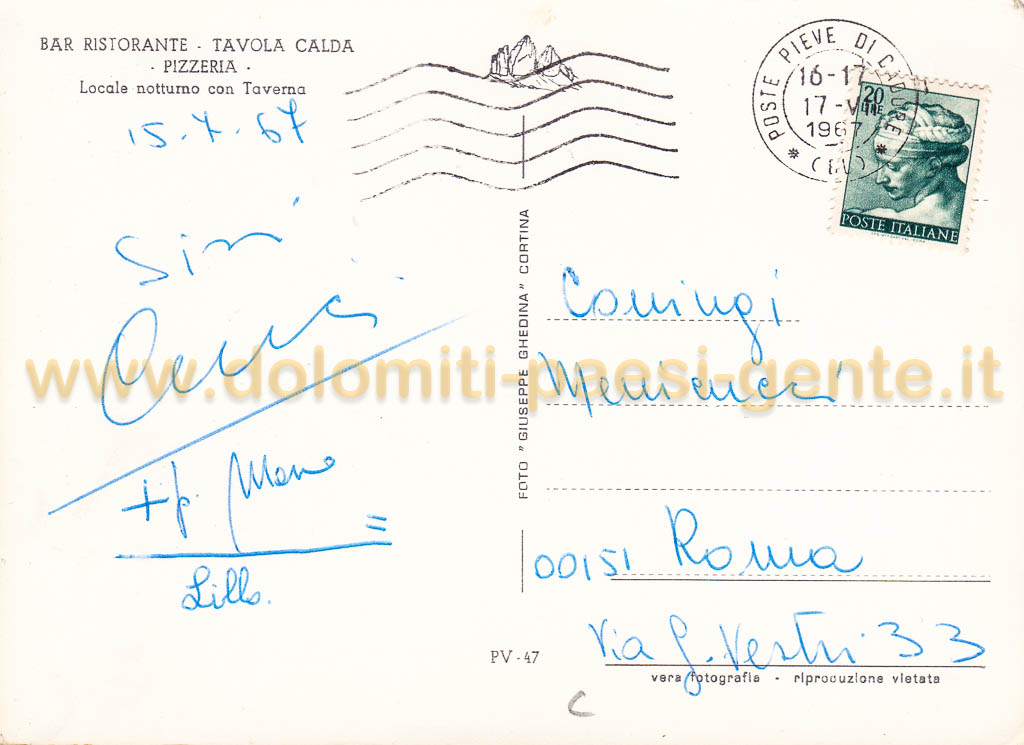 BAR RISTORANTE - TAVOLA CALDA
- PIZZERIA -
Locale notturno con Taverna
15.7.67
POSTE PIEVE DI CADORE
16-17
17-V
1967
20
LIRE
POSTE ITALIANE
www.dolomiti-paesi-gente.it
FOTO "GIUSEPPE GHEDINA" CORTINA
Lillo.
00151 Roma
Via G. Vestri 33
PV - 47
vera fotografia - riproduzione vietata
C